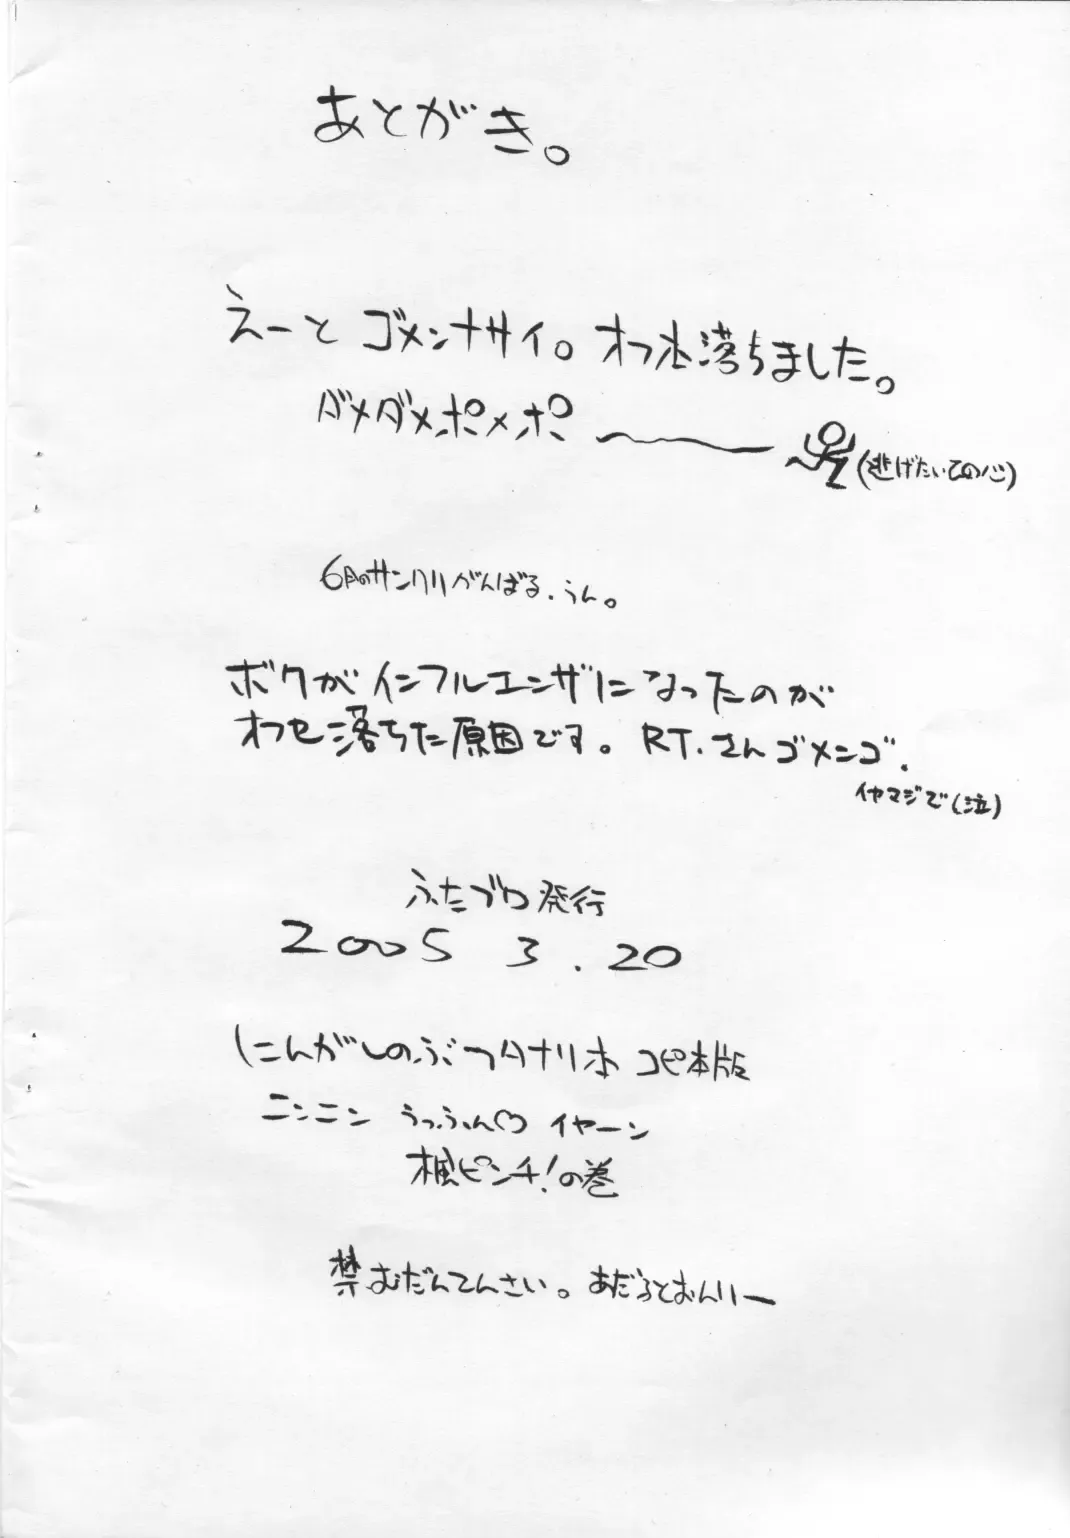 あとがき。
えーと ゴメンナサイ。オフセ落ちました。
ダメダメポメポ
(逃げたいての心)
6月のサンクリがんばる、うん。
ボクがインフルエンザになったのが
オフセ落ちた原因です。RT.さんゴメンゴ.
イヤマジで(泣)
ふたプロ発行
2005 3.20
にんがしのぶフタナリ本 コピ本版
ニンニン うっふん♡ イヤーン
楓ピンチ!の巻
禁むだんてんさい。あだるとおんりー